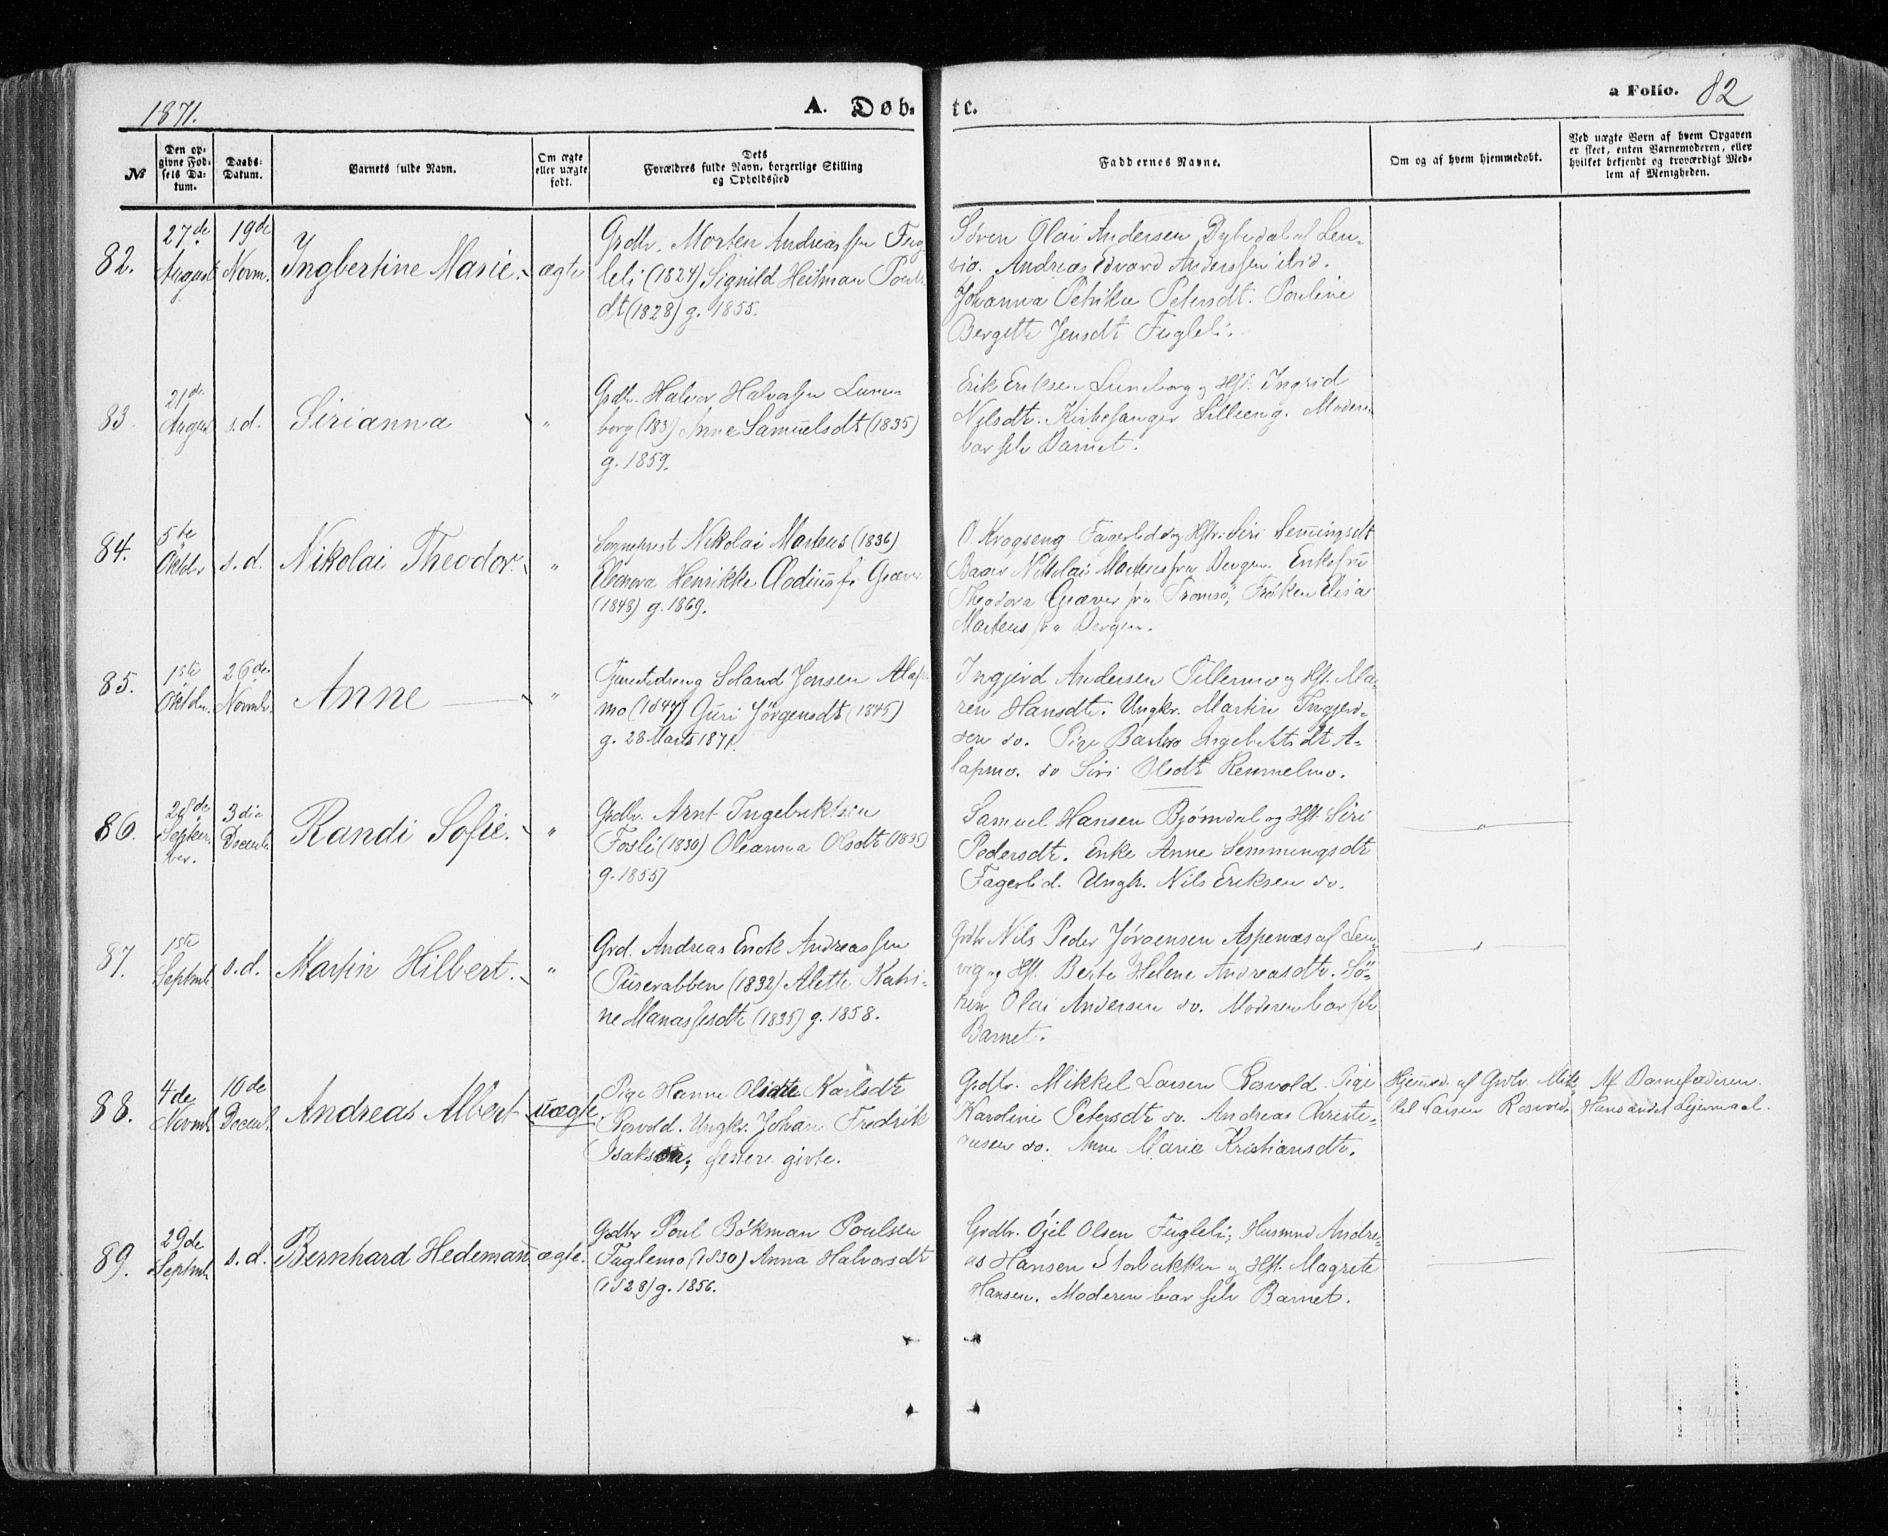 1871.
A. Døb-
te.
a Folio. 82
№
Den op-
givne Fød-
sels Da-
tum.
Daabs-
Datum.
Barnets fulde Navn.
Om ægte
eller uægte
født.
Dets
Forældres fulde Navn, borgerlige Stilling
og Opholdssted
Faddernes Navne.
Om og af hvem hjemmedøbt.
Ved uægte Børn af hvem Opgaven
er skeet, enten Barnemoderen, eller
hvilket bekjendt og troværdigt Med-
lem af Menigheden.
82.
27de
August
19de
Novm.
Ingbertine Marie.
ægte
Grdbr. Morten Andreassen Fug-
leli (1824) Signild Heitman Pouls-
dt (1828) g. 1855.
Søren Olai Andersen Dybedal af Len-
vig. Andreas Edvard Anderssen ibid.
Johanna Petrike Petersdt. Pouline
Bergitte Jensdt Fugleli.
83.
21de
August
s.d.
Sirianna
"
Grdbr. Halvor Halvorsen Lune-
borg (183) Anne Samuelsdt (1835)
g. 1859.
Erik Eriksen Luneborg og Hst. Ingrid
Nilsdt. Kirkesanger Lillieng. Moderen
bar selv Barnet.
84.
5te
Oktobr
s.d.
Nikolai Theodor.
"
Sogneprest Nikolai Martens (1836)
Eleonora Henrikke Clodiusf. Græver
(1848) g. 1869.
O. Krogseng Fagerlid og Hstr. Siri Semmingsdt
Bager Nikolai Martens fra Bergen. Enkefru
Theodora Græver fra Tromsø, Frøken Elisa
Martens fra Bergen.
85.
1ste
Oktobr.
26de
Novmbr.
Anne
"
Tjenestedreng Soland Jonsen Alap-
mo (1844) Guri Jørgensdt (1845)
g. 28 Marts 1871.
Ingjerd Andersen Tillermo og Hst. Ma-
ren Hansdt. Ungkr. Martin Ingjerd-
sen do. Pige Barbro Ingebrigtsdt A-
lapmo. do Siri Olsdt Remmelmo.
86.
28de
Septem-
ber.
3die
Decemb.
Randi Sofie.
"
Grdbr. Arnt Ingebriktsen
Fosli (1830) Oleanna Olsdt (1835)
g. 1855)
Samuel Hansen Bjørndal og Hst. Siri
Pedersdt. Enke Anne Semmingsdt
Fagerlid. Ungk. Nils Eriksen do.
87.
1ste
Septmb.
s.d.
Martin Hilbert.
"
Grd. Andreas Enok Andreassen
Puserabben (1832) Alette Katri-
ne Manassesdt (1835) g. 1858.
Grdbr Nils Peder Jørgensen Aspenæs af Len-
vig og Hst. Berte Helene Andreasdt. Sø-
ren Olai Andersen do. Moderen bar selv
Barnet.
88.
4de
Novmb.
10de
Decemb.
Andreas Albert
uægte
Pige Hanne Olsdtr Karlsdt
Rosvold. Ungkr. Johan Fredrik
Isaksen, senere givte.
Grdbr. Mikkel Larsen Rosvold. Pige
Karoline Petersdt do. Andreas Christe-
nsen do. Anne Marie Kristiansdt.
Hjemmed. af Grdbr. Mik-
kel Larsen Rosvold.
Af Barnefaderen.
Hans andet Leiermaal.
89.
29de
Septmb.
s.d.
Bernhard Hedeman
ægte.
Grdbr Poul Bökman Poulsen
Fuglemo (1830) Anna Halvorsdt
(1828) g. 1856.
Grdbr. Ojel Olsen Fugleli, Husmnd Andre-
as Hansen Storbakken og Hst. Magrete
Hansen. Moderen bar selv Barnet.